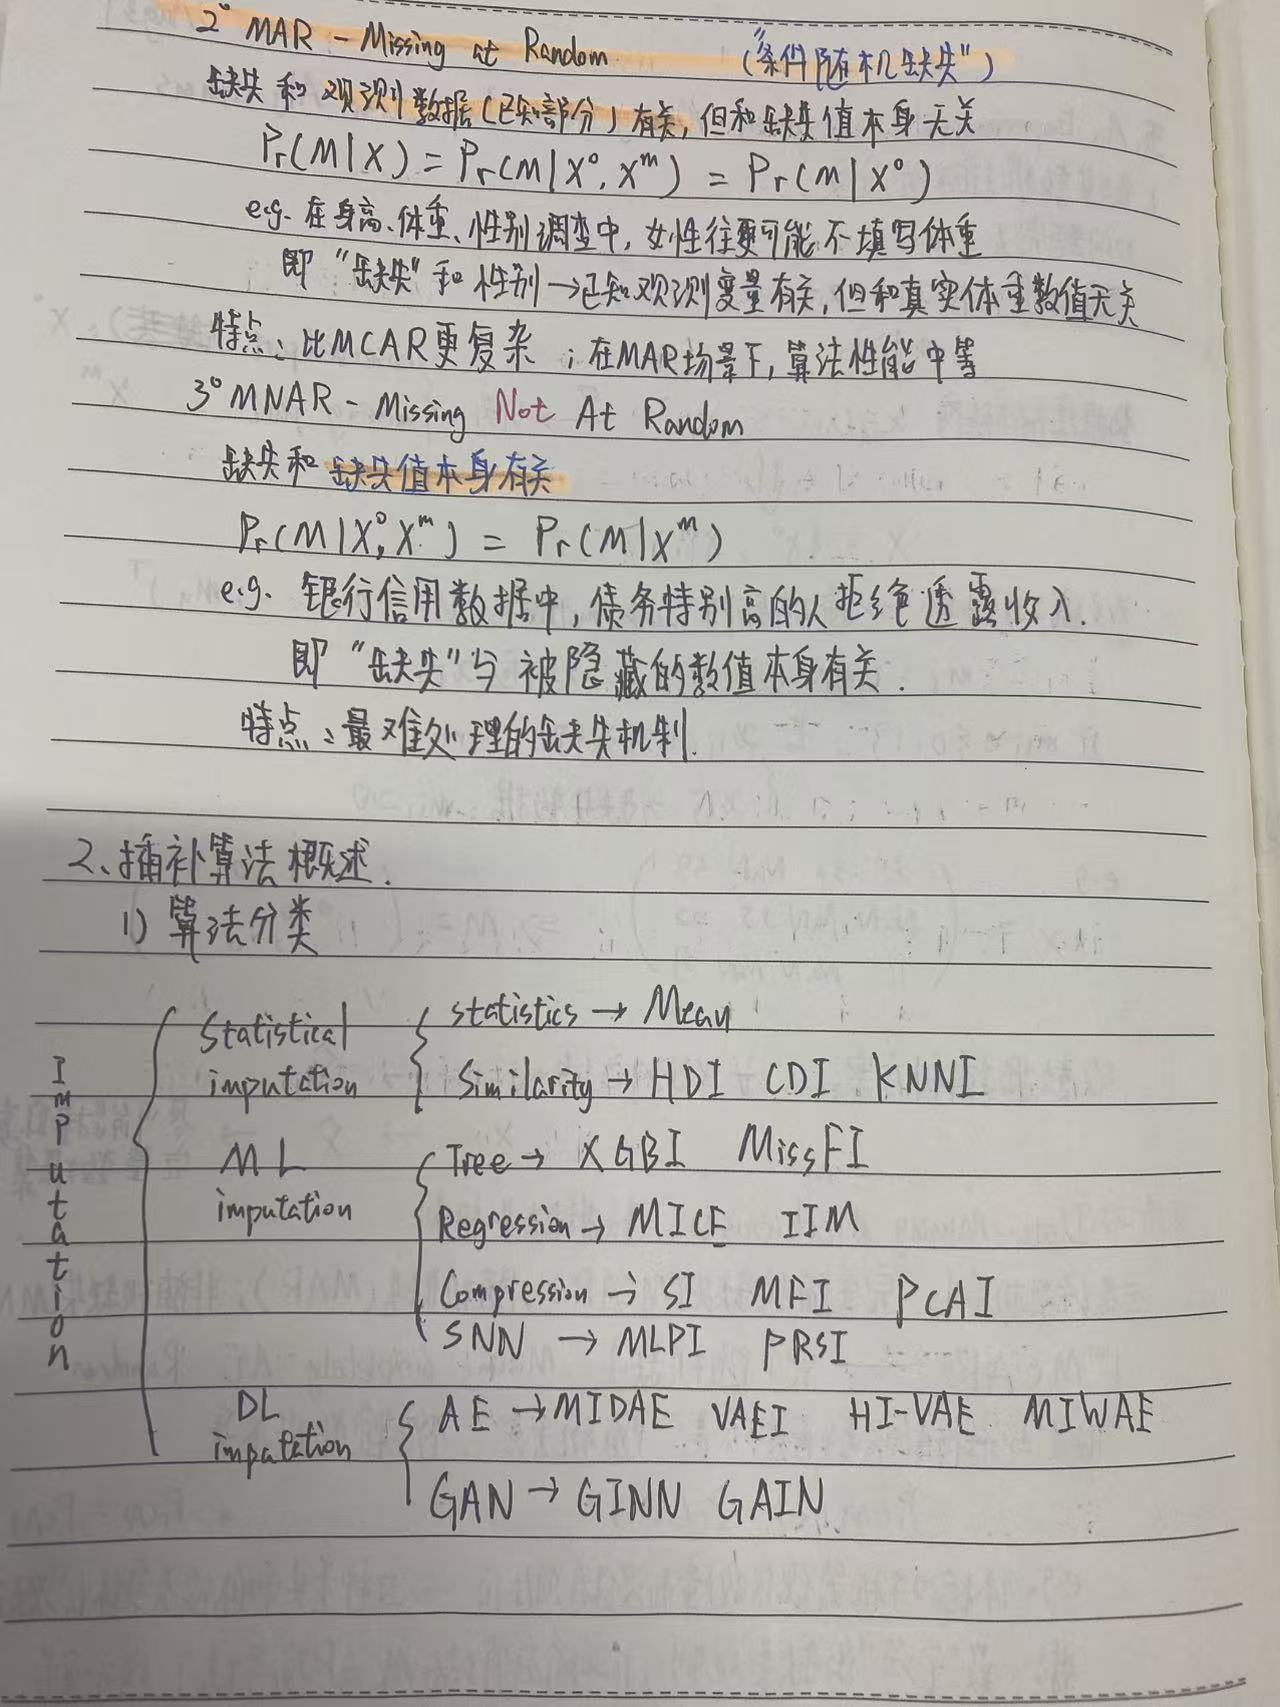 2° MAR - Missing at Random （“条件随机缺失”）
缺失和观测数据（已知部分）有关，但和缺失值本身无关
Pr(M|X) = Pr(M|X°, Xᵐ) = Pr(M|X°)
e.g. 在身高、体重、性别调查中，女性往更可能不填写体重
即“缺失”和性别→已知观测变量有关，但和真实体重数值无关
特点：比MCAR更复杂；在MAR场景下，算法性能中等
3° MNAR - Missing Not At Random
缺失和缺失值本身有关
Pr(M|X°, Xᵐ) = Pr(M|Xᵐ)
e.g. 银行信用数据中，债务特别高的人拒绝透露收入.
即“缺失”与被隐藏的数值本身有关.
特点：最难处理的缺失机制.
2、插补算法概述.
1) 算法分类
Imputation
Statistical imputation
statistics → Mean
Similarity → HDI CDI KNNI
ML imputation
Tree → XGBI MissFI
Regression → MICE IIM
Compression → SI MFI PCAI
SNN → MLPI PRSI
DL imputation
AE → MIDAE VAEI HI-VAE MIWAE
GAN → GINN GAIN